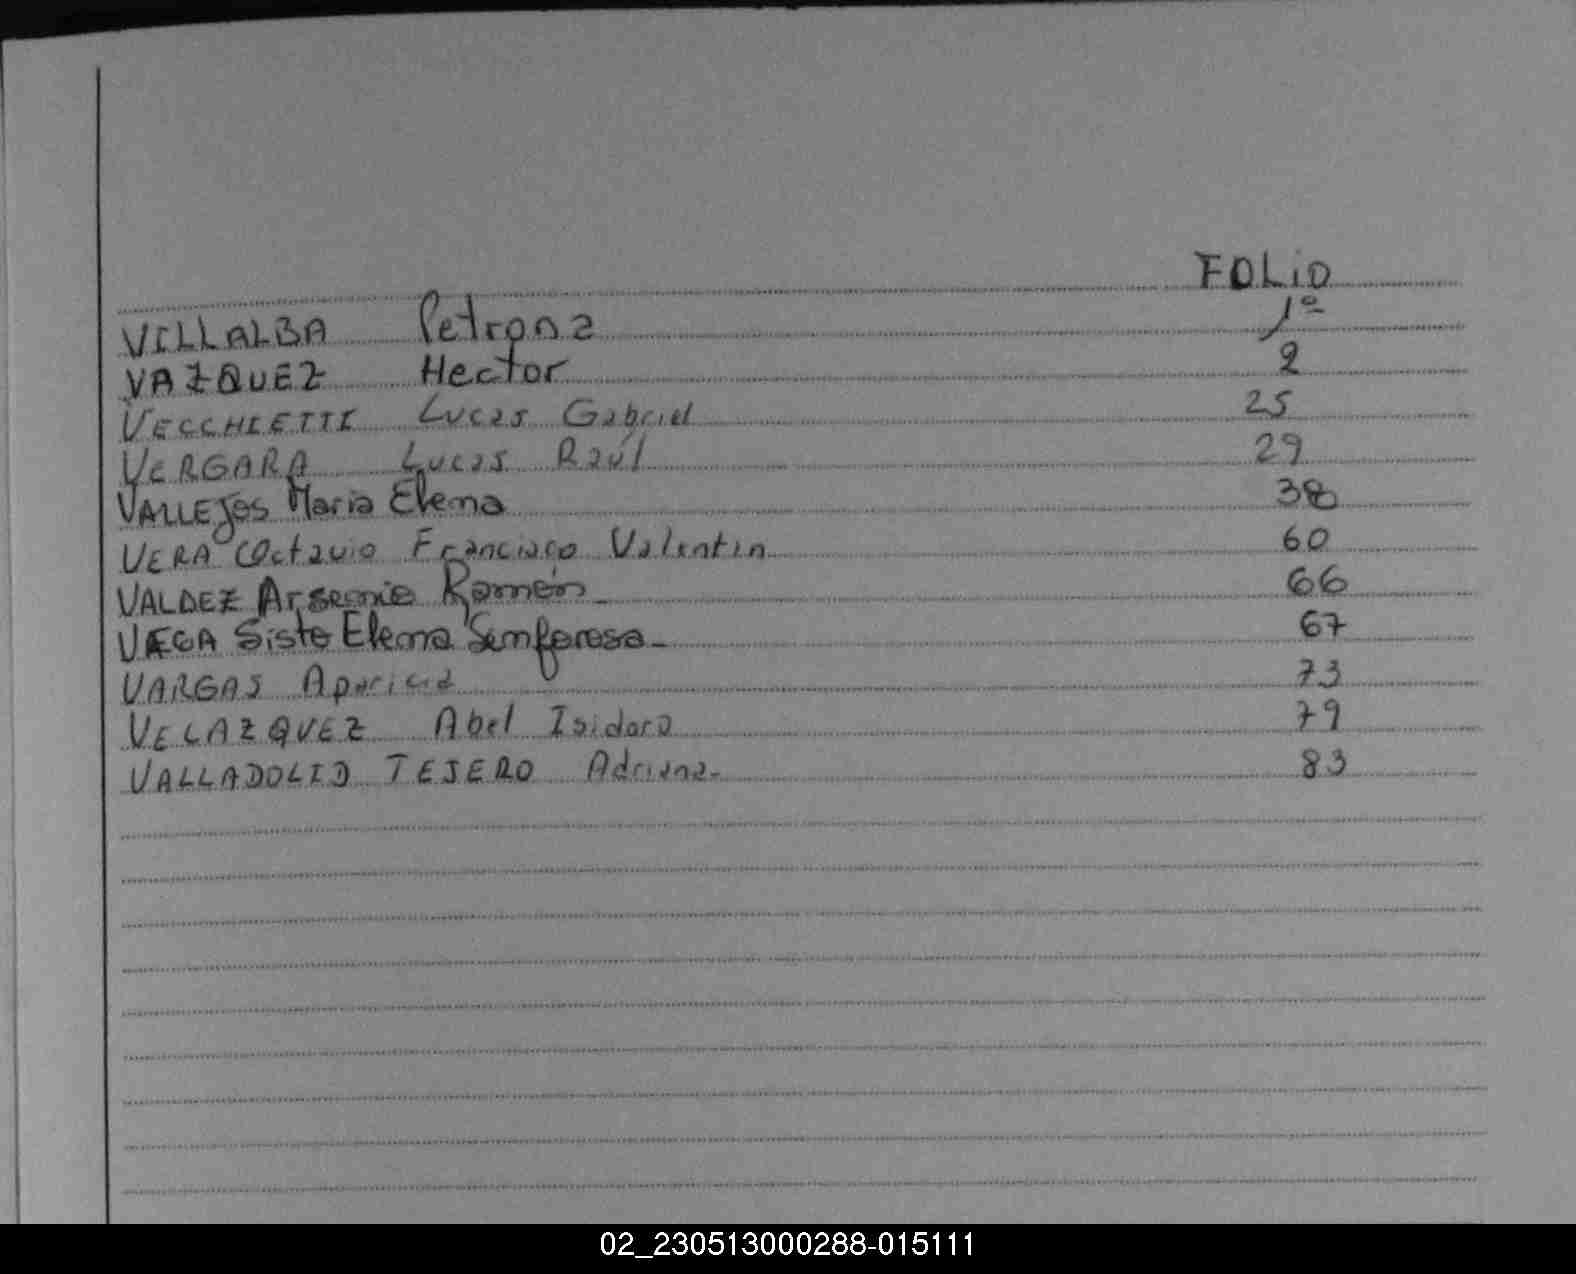 FOLIO
VILLALBA Petrona 1º
VAZQUEZ Hector 2
VECCHIETTI Lucas Gabriel 25
VERGARA Lucas Raúl 29
VALLEJOS Maria Elena 38
VERA Octavio Francisco Valentin 60
VALDEZ Arsenio Ramón 66
VEGA Sisto Elena Semforosa 67
VARGAS Aparicia 73
VELAZQUEZ Abel Isidoro 79
VALLADOLID TEJERO Adriana 83
02_230513000288-015111